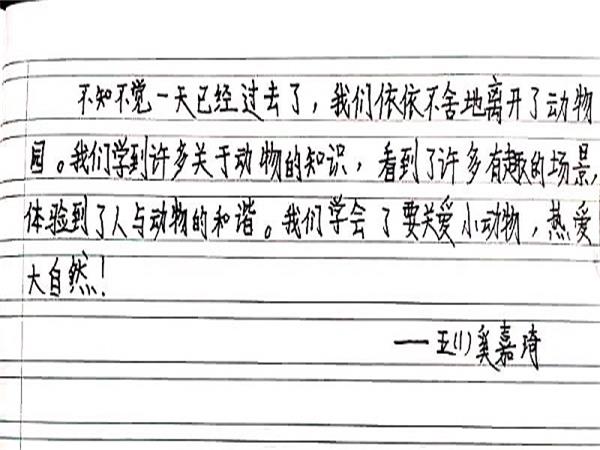 不知不觉一天已经过去了，我们依依不舍地离开了动物
园。我们学到许多关于动物的知识，看到了许多有趣的场景，
体验到了人与动物的和谐。我们学会了要关爱小动物，热爱
大自然！
——五(1)奚嘉琦